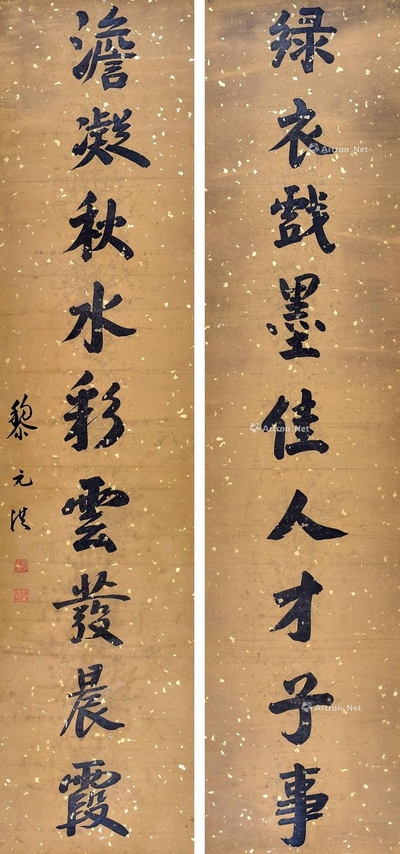 绿衣戲墨佳人才子事
澹凝秋水彩雲發晨霞
黎元洪
Artron.Net
Artron.Net
Artron.Net